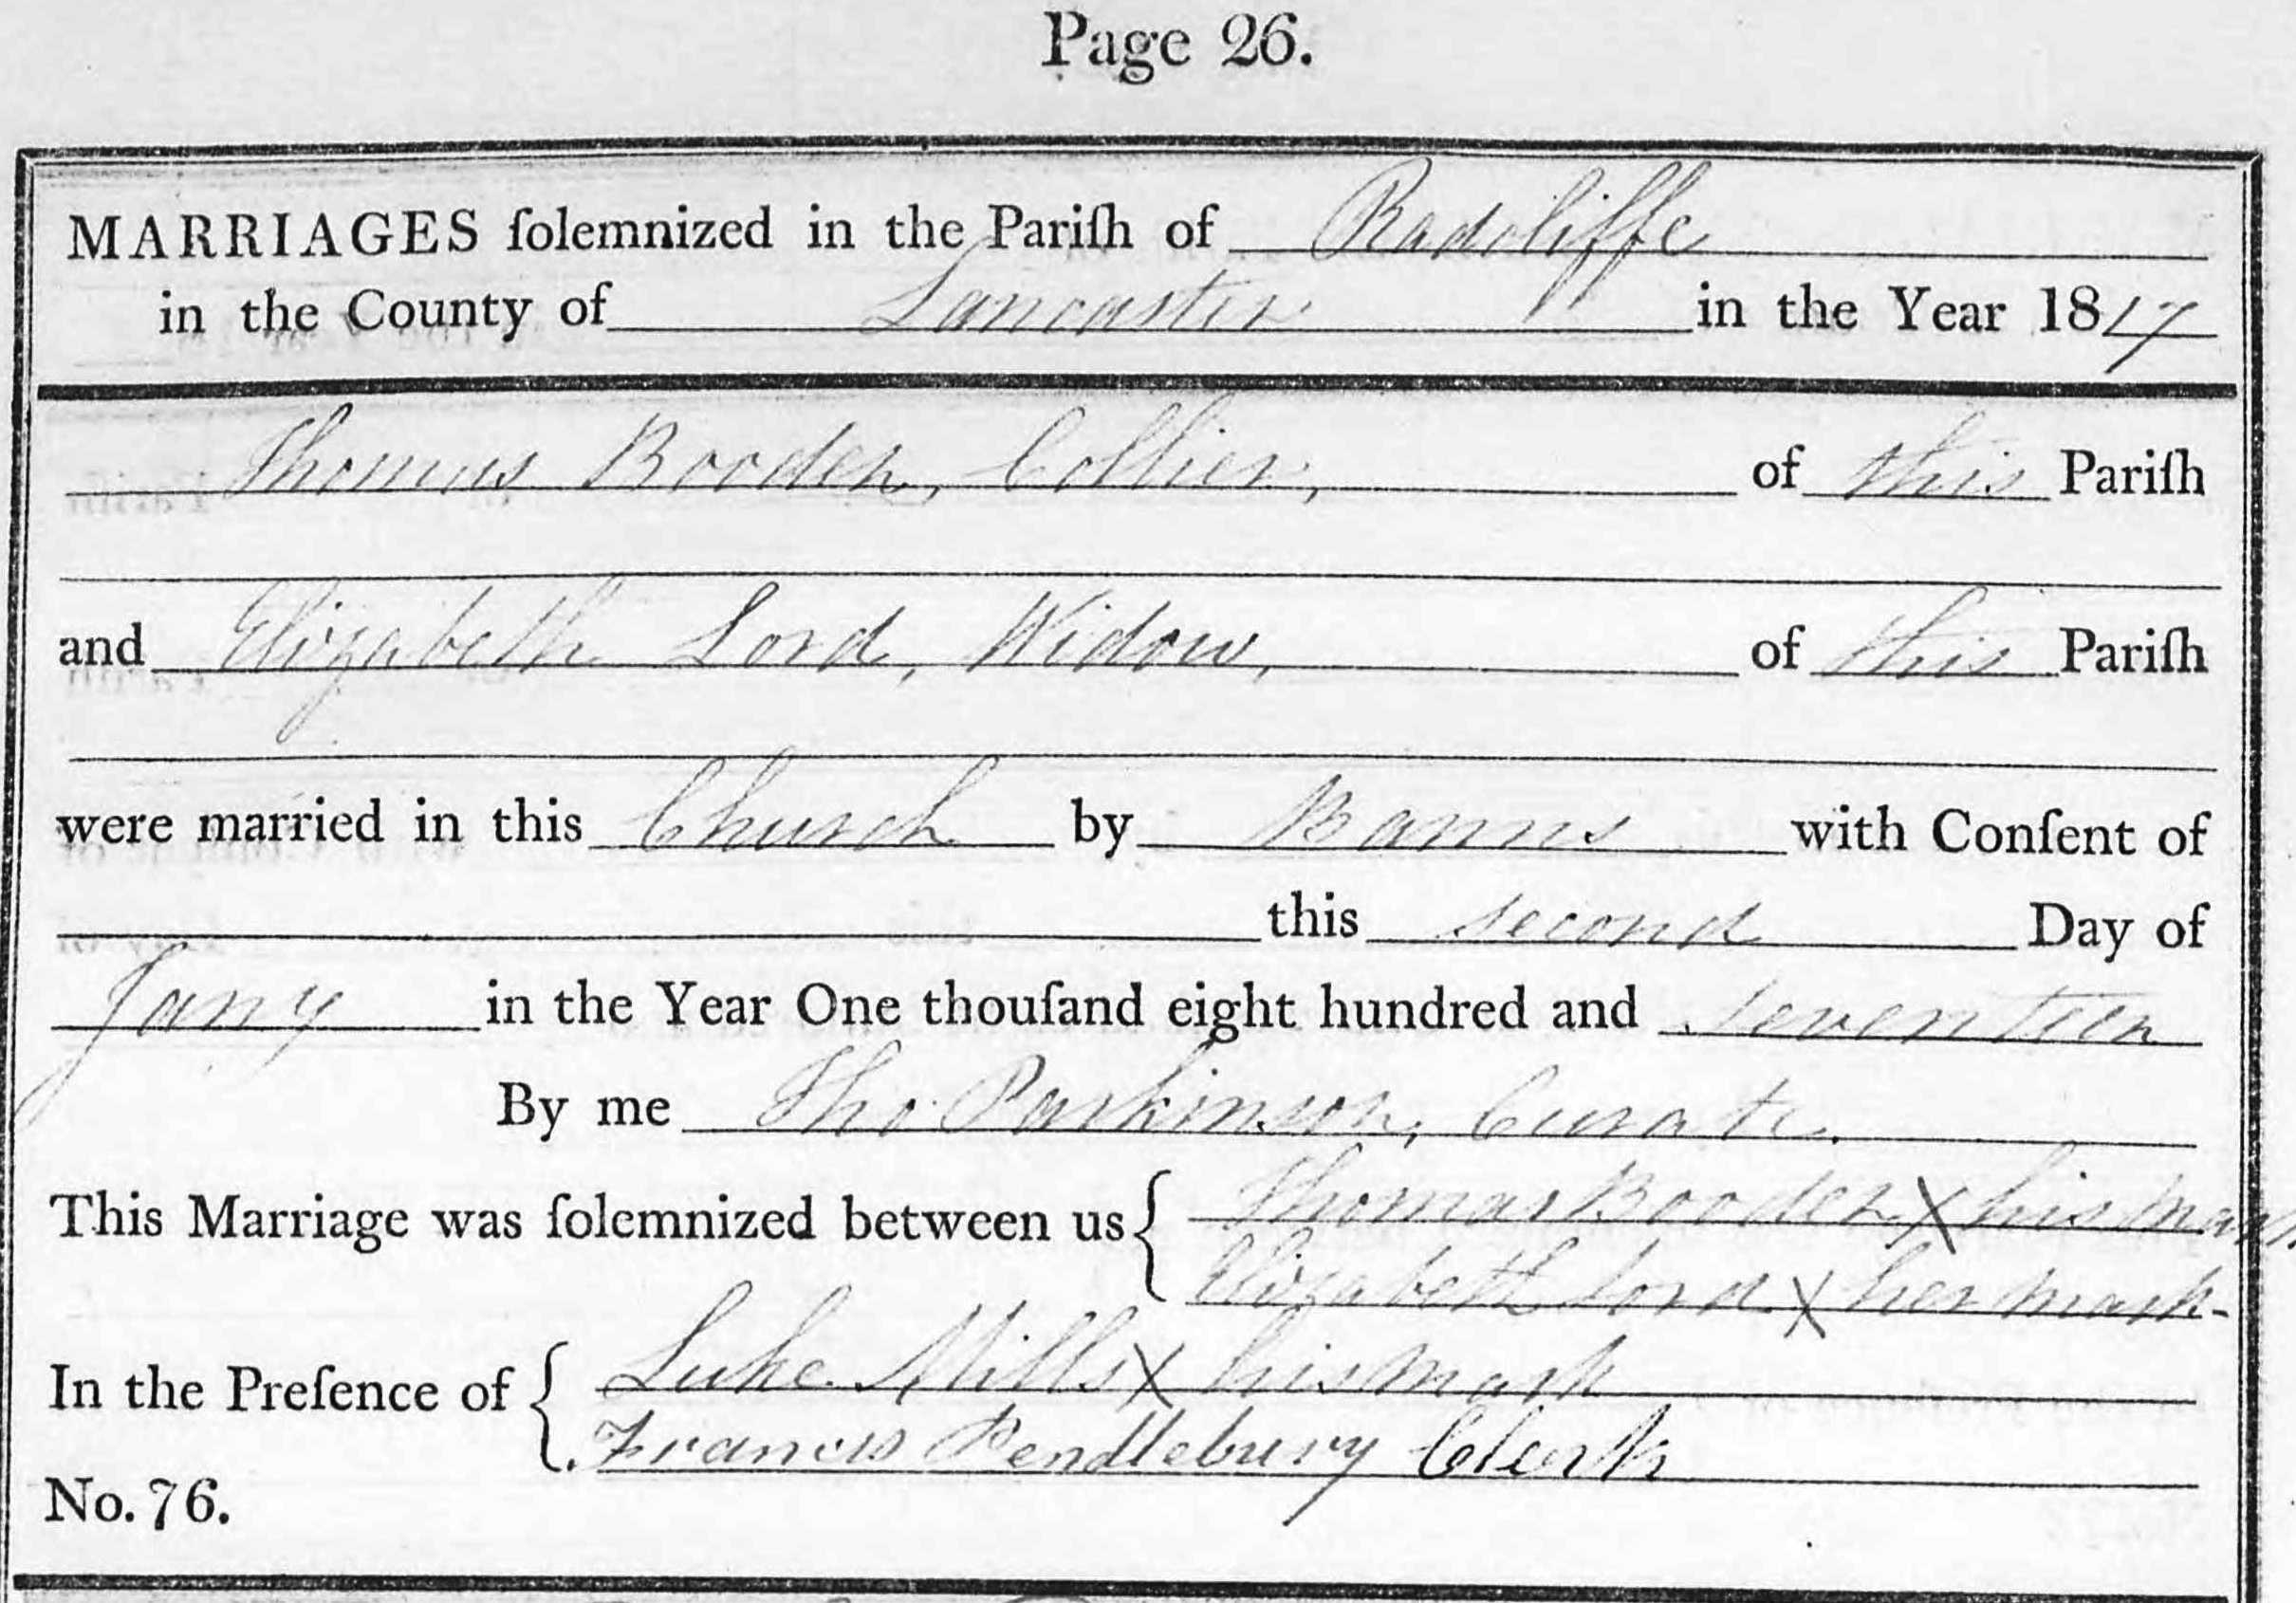 Page 26.
MARRIAGES ſolemnized in the Pariſh of Radcliffe
in the County of Lancaster in the Year 1817
Thomas Booden, Collier, of this Pariſh
and Elizabeth Lord, Widow, of this Pariſh
were married in this Church by Banns with Conſent of
this second Day of
Jany in the Year One thouſand eight hundred and seventeen
By me Tho. Parkinson, Curate.
This Marriage was ſolemnized between us { Thomas Booden X his mark
Elizabeth Lord X her mark-
In the Preſence of { Luke Mills X his mark
Francis Pendlebury Clerk
No. 76.